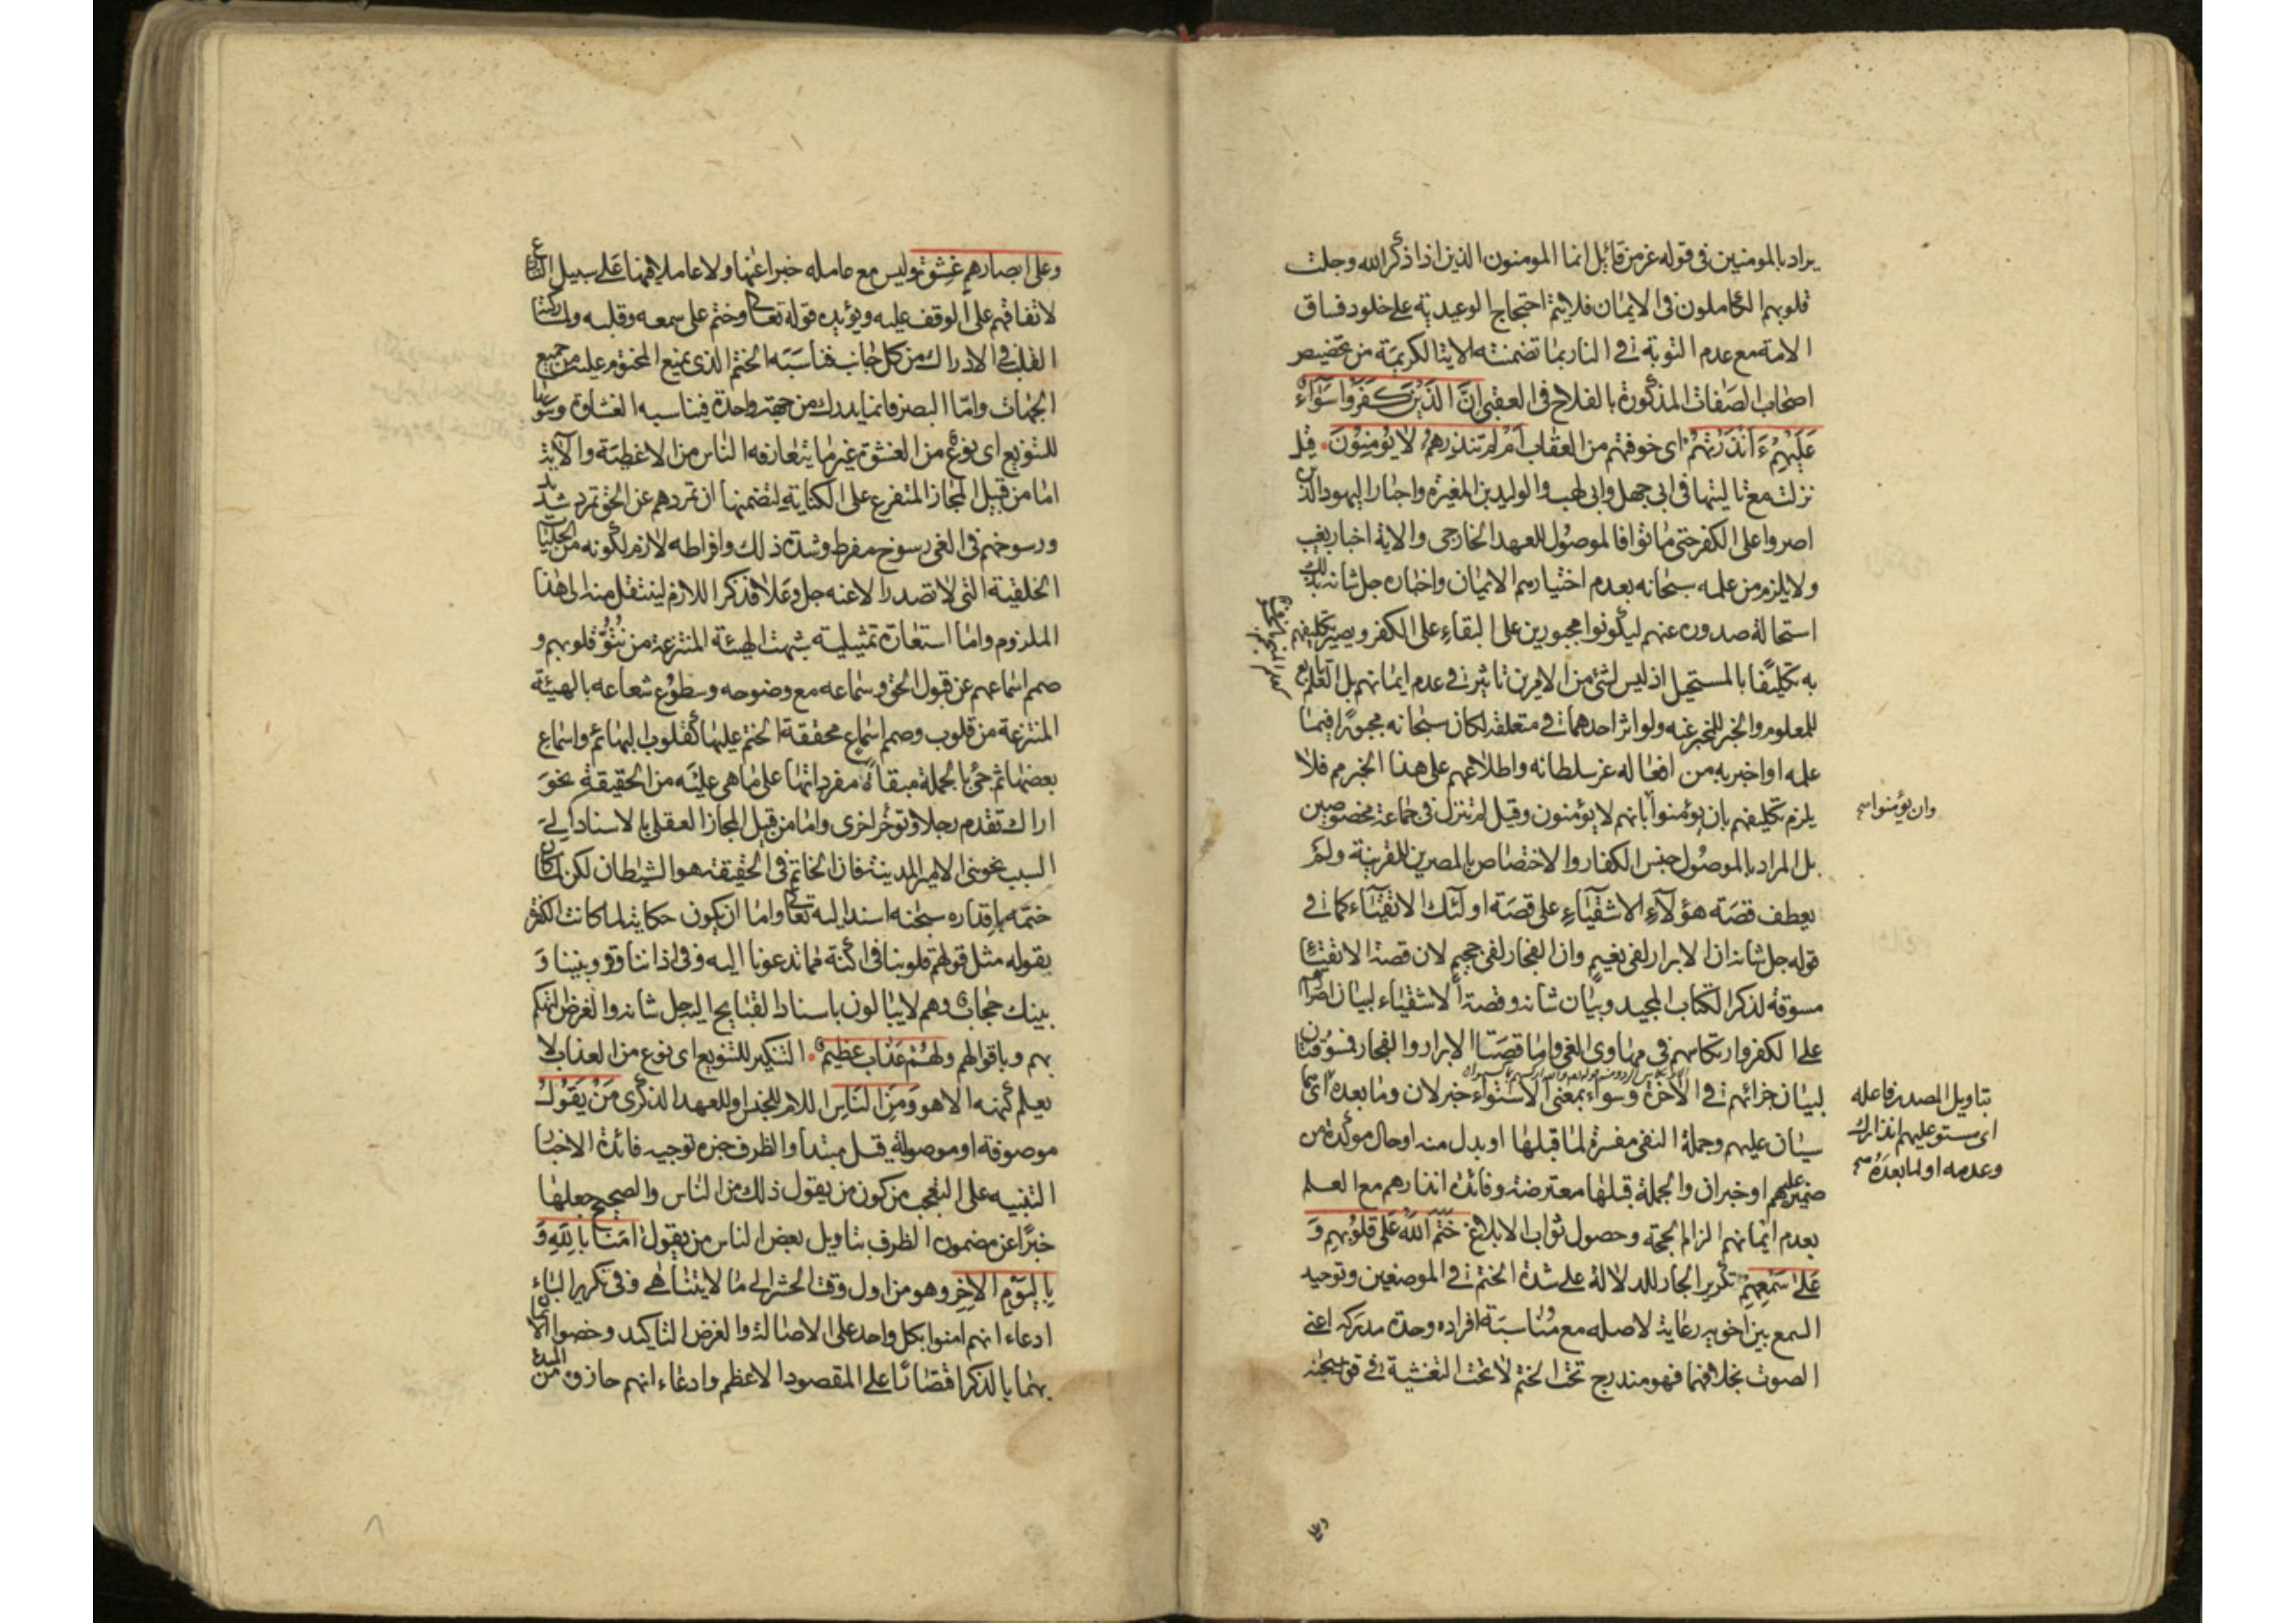 يراد بالمومنين فى قوله عز من قائل انما المومنون الذين اذا ذكر الله وجلت
قلوبهم الكاملون فى الايمان فلا يتم احتجاج الوعيدية على خلود فساق
الامة مع عدم التوبة فى النار بما تضمنته الاية الكريمة من تخصيص
اصحاب الصفات المذكورة بالفلاح فى العقبى اِنَّ الَّذِيْنَ كَفَرُوْا سَوَآءٌ
عَلَيْهِمْ ءَاَنْذَرْتَهُمْ اى خوفتهم من العقاب اَمْ لَمْ تُنْذِرْهُمْ لَا يُؤْمِنُوْنَ قيل
نزلت مع تاليتها فى ابى جهل وابى لهب والوليد بن المغيرة واحبار اليهود الذين
اصروا على الكفر حتى ماتوا فالموصول للعهد الخارجى والاية اخبار بغيب
ولا يلزم من علمه سبحانه بعدم اختيارهم الايمان واخباره جل شانه بذلك
استحالة صدوره عنهم ليكونوا مجبورين على البقاء على الكفر ويصير تكليفهم
به تكليفا بالمستحيل اذ ليس لشئ من الامرين تاثير فى عدم ايمانهم بل العلم تابع
للمعلوم والخبر للمخبر عنه ولو اثر احدهما فى متعلقه لكان سبحانه مجبورا فيما
علمه او اخبر به من افعاله عز سلطانه واطلاعهم على هذا الخبر مم فلا
يلزم تكليفهم بان يؤمنوا بانهم لا يؤمنون وقيل لم تنزل فى جماعة مخصوصين
وان يؤمنوا صح
بل المراد بالموصول جنس الكفار والاختصاص بالمصرين للقرينة ولم
يعطف قصة هؤلآء الاشقيآء على قصة اولئك الاتقيآء كما فى
قوله جل شانه ان الابرار لفى نعيم وان الفجار لفى جحيم لان قصة الاتقياء
مسوقة لذكر الكتاب المجيد وبيان شانه وقصة الاشقياء لبيان اصرارهم
على الكفر وارتكاسهم فى مهاوى الغى واما قصتا الابرار والفجار فمسوقتان
لبيان جزائهم فى الاخرة وسواء بمعنى الاستواء خبر لان وما بعده
بتاويل المصدر فاعله
اى مستو عليهم انذارك
وعدمه او لما بعده صح
سيان عليهم وجملة النفى مفسرة لما قبلها او بدل منه او حال مؤكدة من
ضمير عليهم او خبر ان والجملة قبلها معترضة وفائدة انذارهم مع العلم
بعدم ايمانهم الزام الحجة وحصول ثواب الابلاغ خَتَمَ اللهُ عَلٰى قُلُوْبِهِمْ وَ
عَلٰى سَمْعِهِمْ تكرير الجار للدلالة على شدة الختم فى الموضعين وتوحيد
السمع بين اخويه رعاية لاصله مع مناسبة افراده وحدة مدركه اعنى
الصوت بخلافهما فهو مندرج تحت الختم لا تحت التغشية فى قوله سبحانه
وعلى
وعلى ابصارهم غشوة وليس مع عامله خبرا عنها ولا عاملا فيها على سبيل التنازع
لاتفاقهم على الوقف عليه ويؤيده قوله تعالى وختم على سمعه وقلبه ولمشاركته
القلب فى الادراك من كل جانب فناسبه الختم الذى يمنع المختوم عليه من جميع
الجهات واما البصر فانما يدرك من جهة واحدة فيناسبه الغشاوة وتنوينها
للتنويع اى نوع من الغشوة غير ما يتعارفه الناس من الاغطية والآية
اما من قبيل المجاز المتفرع على الكناية لتضمنها ان تمردهم عن الحق تمرد شديد
ورسوخهم فى الغى رسوخ مفرط وشدة ذلك وافراطه لازم لكونه من الجبليات
الخلقية التى لا تصدر الا عنه جل وعلا فذكر اللازم لينتقل منه الى هذا
الملزوم واما استعارة تمثيلية شبهت الهيئة المنتزعة من نُتُوّ قلوبهم و
صمم اسماعهم عن قبول الحق وسماعه مع وضوحه وسطوع شعاعه بالهيئة
المنتزعة من قلوب وصمم اسماع محققة الختم عليها كقلوب البهائم واسماع
بعضها ثم جئ بالجملة مبقاة مفرداتها على ما هى عليه من الحقيقة نحو
اراك تقدم رجلا وتوخر اخرى واما من قبيل المجاز العقلى بالاسناد الى
السبب نحو بنى الامير المدينة فان الخاتم فى الحقيقة هو الشيطان لكن لما كان
ختمه باقداره سبحنه اسند اليه تعالى واما ان يكون حكاية لما كانت الكفرة
يقوله مثل قولهم قلوبنا فى اكنة مما تدعونا اليه وفى اذاننا وقر وبيننا و
بينك حجاب وهم لا يبالون باسناد القبايح اليه جل شانه والغرض التهكم
بهم وباقوالهم وَلَهُمْ عَذَابٌ عَظِيْمٌ التنكير للتنويع اى نوع من العذاب لا
يعلم كنهه الا هو وَمِنَ النَّاسِ اللام للجنس او للعهد الذكرى مَنْ يَقُوْلُ
موصوفة او موصولة قيل مبتدأ والظرف خبره توجيه فائدة الاخبار
التنبيه على التعجب من كون من يقول ذلك من الناس والصحيح جعلها
خبرا عن مضمون الظرف بتاويل بعض الناس من يقول اٰمَنَّا بِاللهِ وَ
بِالْيَوْمِ الْاٰخِرِ وهو من اول وقت الحشر الى ما لا يتناهى وفى تكرير الباء
ادعاء انهم امنوا بكل واحد على الاصالة والغرض التاكيد وخصوا الايمان
بهما بالذكر اقتصارا على المقصود الاعظم وادعاء انهم حازوه من المبدء
٨